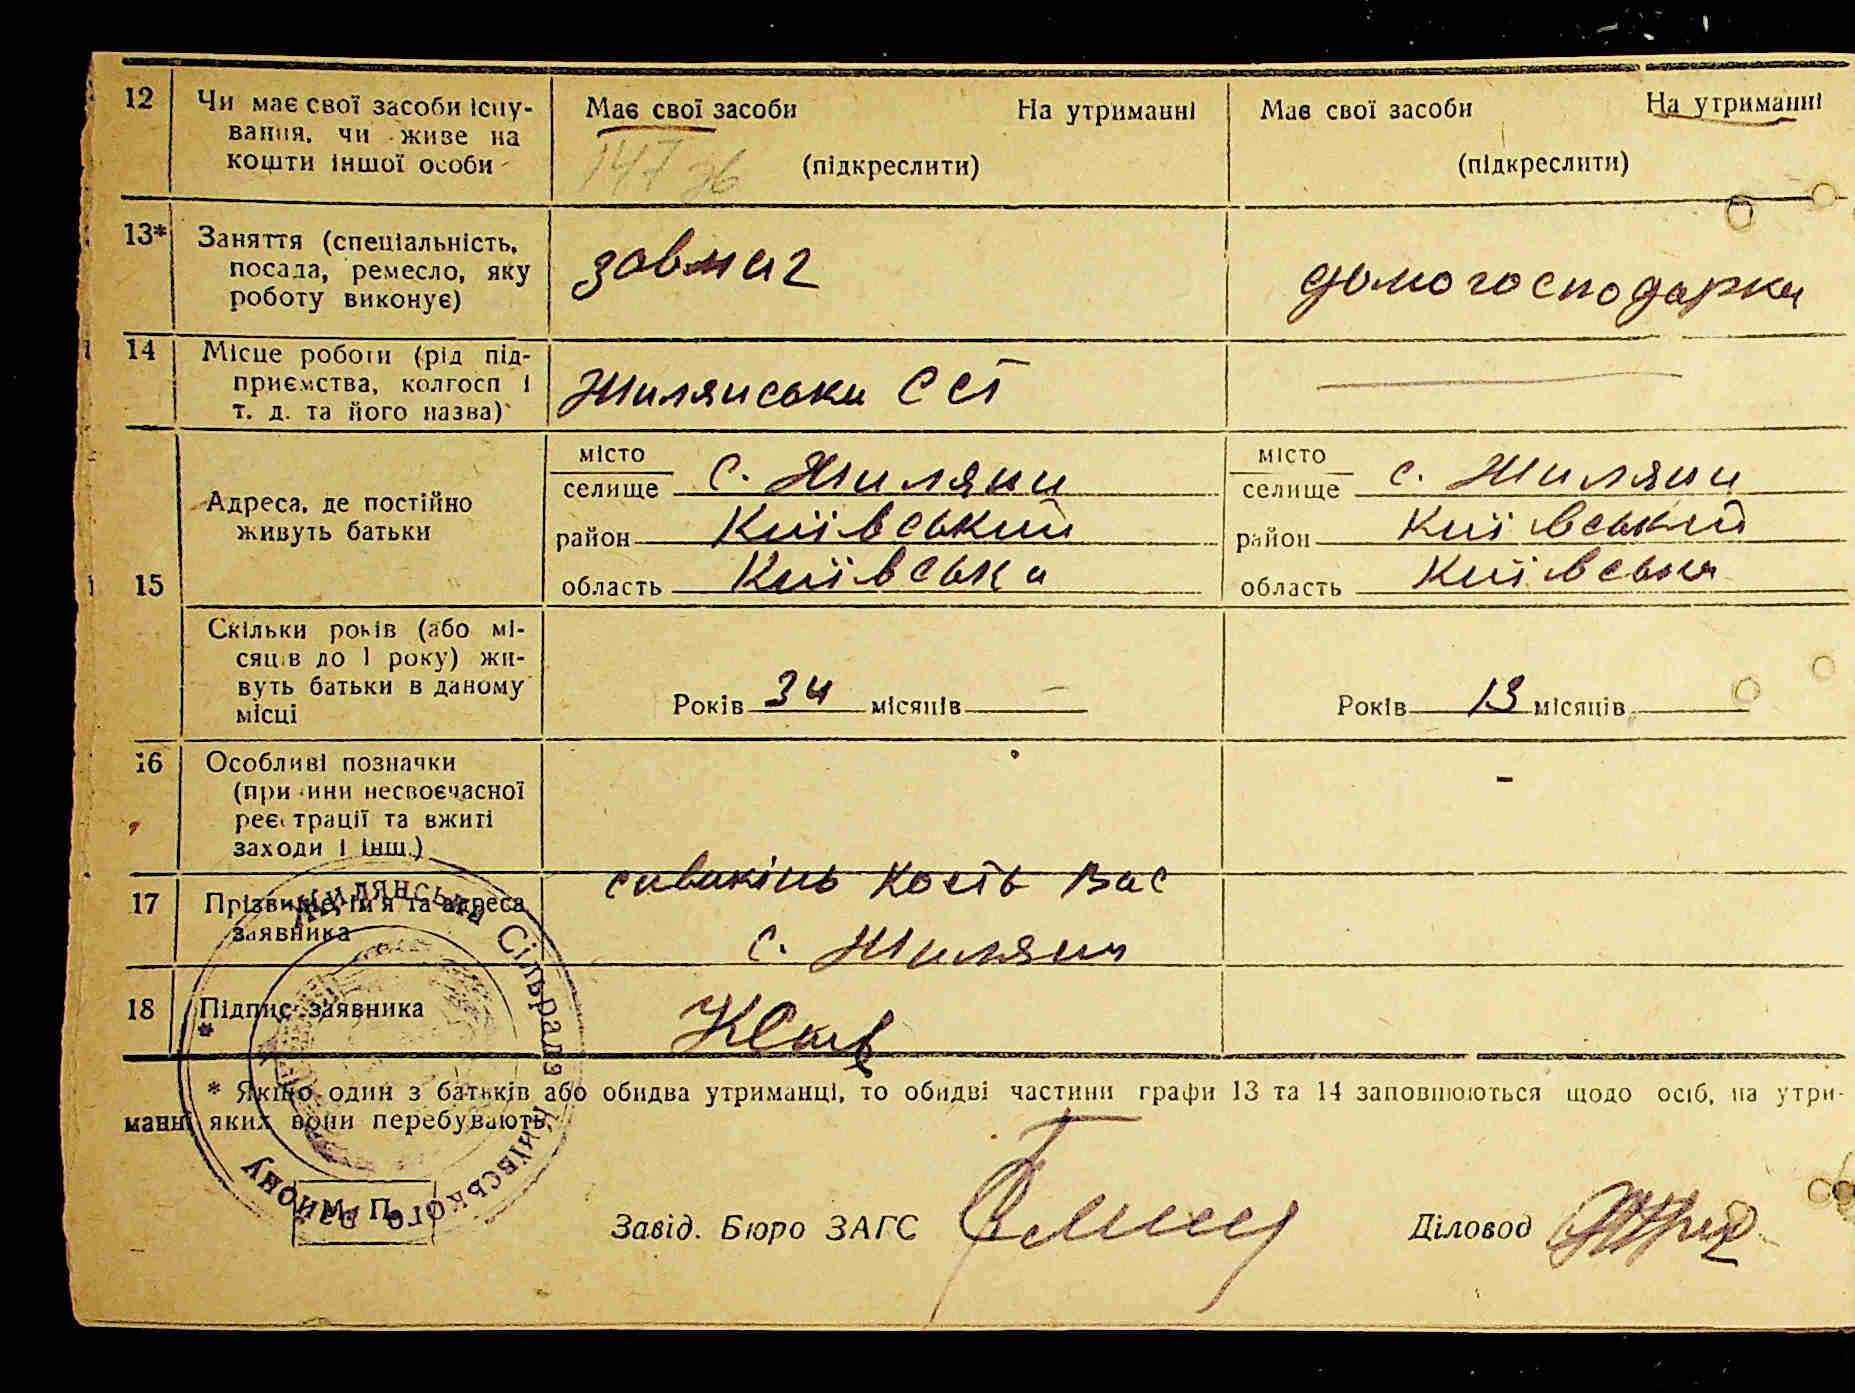 12 Чи має свої засоби існу- Має свої засоби На утриманні Має свої засоби На утриманні
вання, чи живе на
кошти іншої особи (підкреслити) (підкреслити)
147 зв
13* Заняття (спеціальність,
посада, ремесло, яку завмаг домогосподарка
роботу виконує)
14 Місце роботи (рід під-
приємства, колгосп і Жилянськи ССТ
т. д. та його назва)
місто с. Жиляни місто с. Жиляни
селище селище
Адреса, де постійно
живуть батьки район Київський район Київський
15 область Київська область Київська
Скільки років (або мі-
сяців до 1 року) жи-
вуть батьки в даному Років 34 місяців — Років 13 місяців
місці
16 Особливі позначки
(причини несвоєчасної -
реєстрації та вжиті
заходи і інш.)
17 Прізвище, ім'я та адреса савакінь Кость Вас
заявника с. Жиляни
18 Підпис заявника
* Якщо один з батьків або обидва утриманці, то обидві частини графи 13 та 14 заповнюються щодо осіб, на утри-
манні яких вони перебувають.
Жилянська Сільрада Київського району
М. П.
Завід. Бюро ЗАГС Діловод